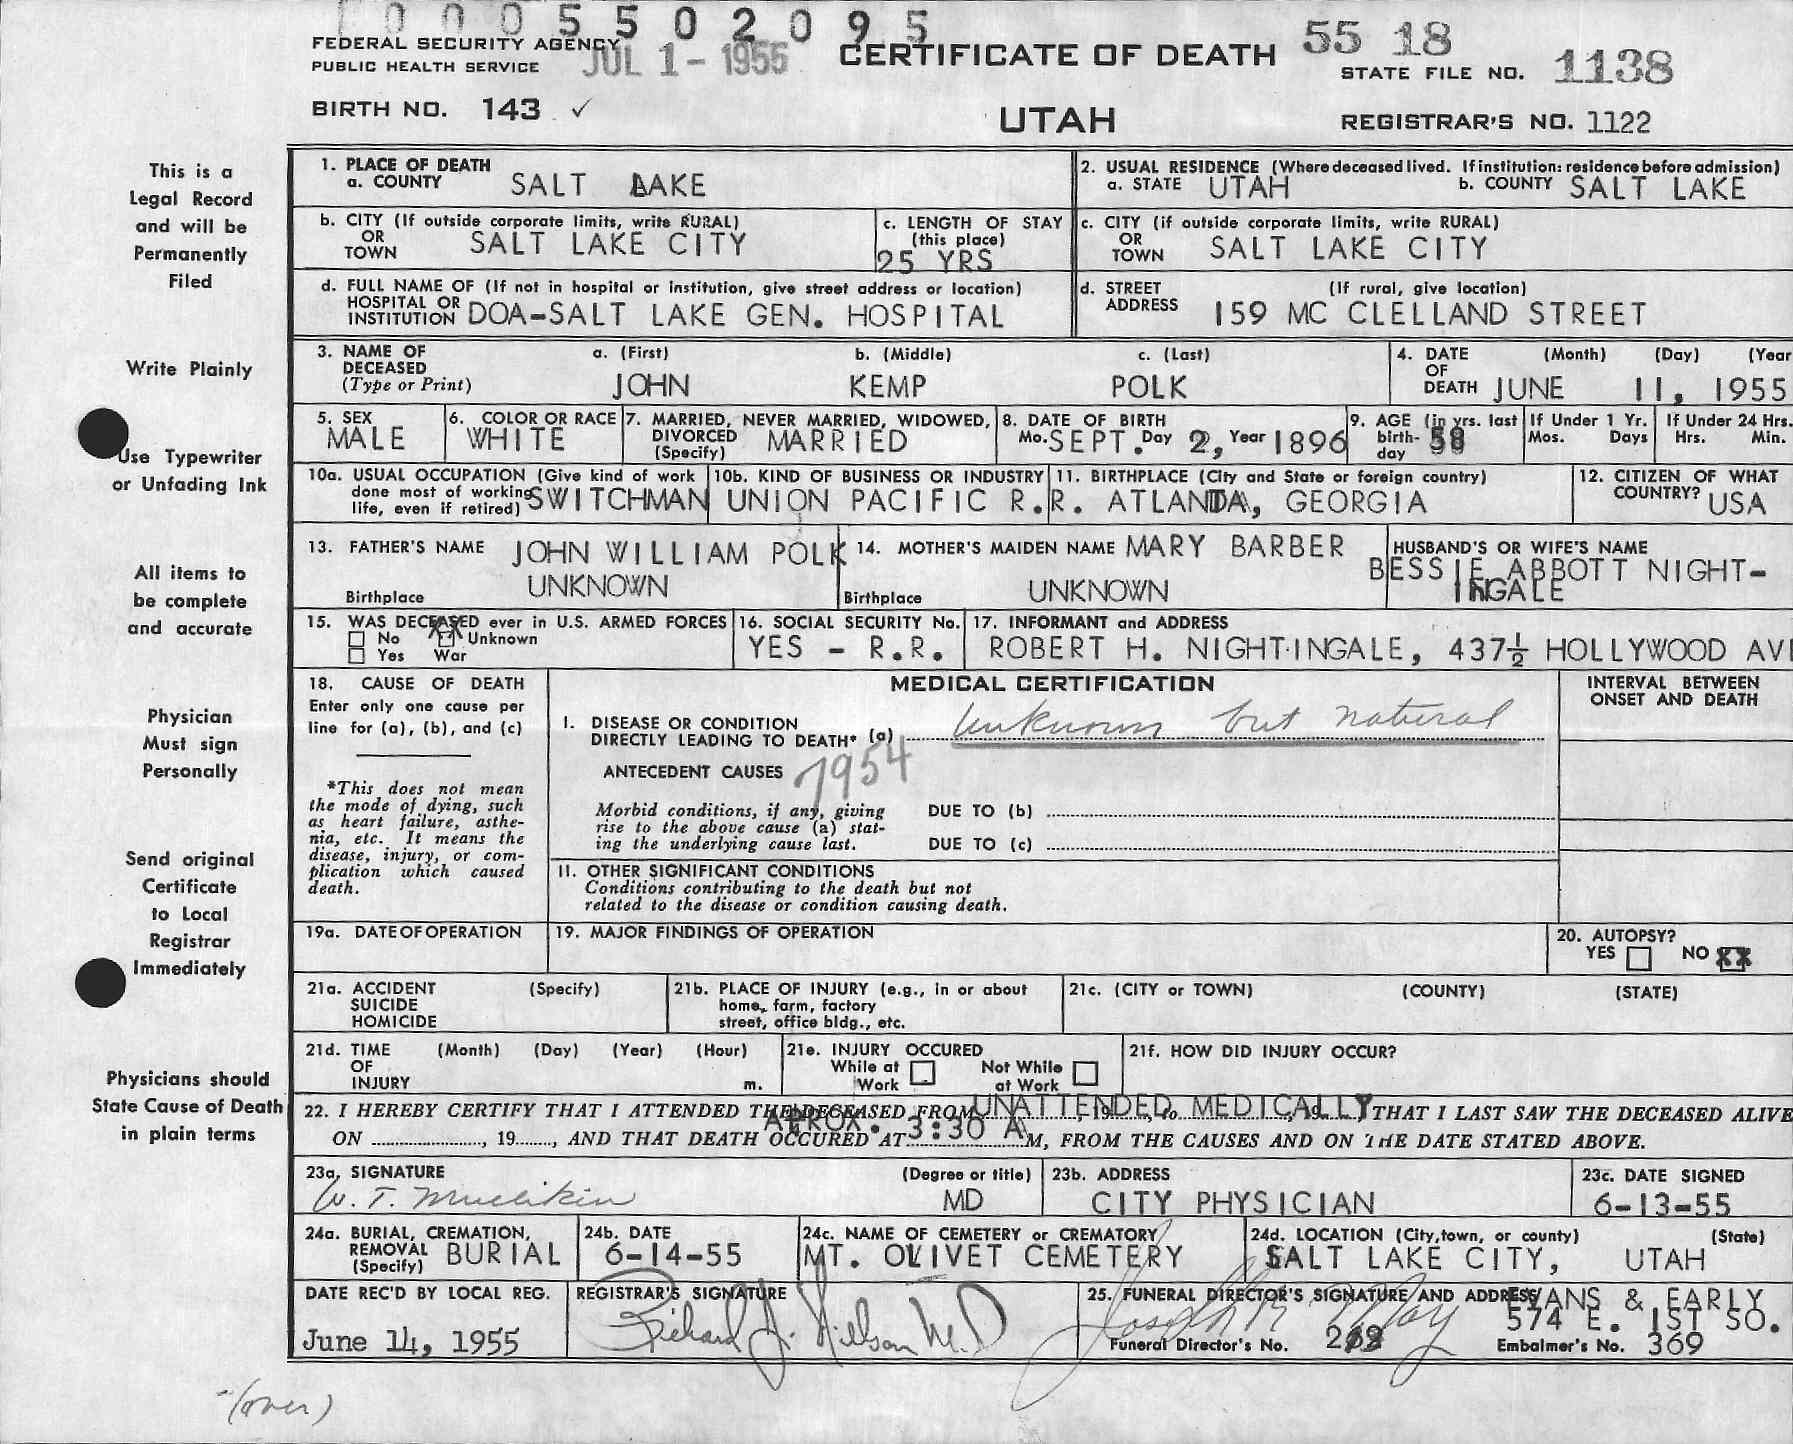 0005502095
FEDERAL SECURITY AGENCY
PUBLIC HEALTH SERVICE
JUL 1 - 1955
CERTIFICATE OF DEATH
55 18
STATE FILE NO. 1138
BIRTH NO. 143 ✓
UTAH
REGISTRAR'S NO. 1122
This is a
Legal Record
and will be
Permanently
Filed
Write Plainly
Use Typewriter
or Unfading Ink
All items to
be complete
and accurate
Physician
Must sign
Personally
Send original
Certificate
to Local
Registrar
Immediately
Physicians should
State Cause of Death
in plain terms
1. PLACE OF DEATH
a. COUNTY SALT LAKE
2. USUAL RESIDENCE (Where deceased lived. If institution: residence before admission)
a. STATE UTAH b. COUNTY SALT LAKE
b. CITY (If outside corporate limits, write RURAL)
OR
TOWN SALT LAKE CITY
c. LENGTH OF STAY
(this place)
25 YRS
c. CITY (if outside corporate limits, write RURAL)
OR
TOWN SALT LAKE CITY
d. FULL NAME OF (If not in hospital or institution, give street address or location)
HOSPITAL OR
INSTITUTION DOA-SALT LAKE GEN. HOSPITAL
d. STREET (If rural, give location)
ADDRESS 159 MC CLELLAND STREET
3. NAME OF
DECEASED
(Type or Print)
a. (First) b. (Middle) c. (Last)
JOHN KEMP POLK
4. DATE (Month) (Day) (Year
OF
DEATH JUNE 11, 1955
5. SEX
MALE
6. COLOR OR RACE
WHITE
7. MARRIED, NEVER MARRIED, WIDOWED,
DIVORCED MARRIED
(Specify)
8. DATE OF BIRTH
Mo. SEPT. Day 2, Year 1896
9. AGE (in yrs. last
birth- 58
day
If Under 1 Yr.
Mos. Days
If Under 24 Hrs.
Hrs. Min.
10a. USUAL OCCUPATION (Give kind of work
done most of working SWITCHMAN
life, even if retired)
10b. KIND OF BUSINESS OR INDUSTRY
UNION PACIFIC R.R.
11. BIRTHPLACE (City and State or foreign country)
ATLANTA, GEORGIA
12. CITIZEN OF WHAT
COUNTRY? USA
13. FATHER'S NAME JOHN WILLIAM POLK
Birthplace UNKNOWN
14. MOTHER'S MAIDEN NAME MARY BARBER
Birthplace UNKNOWN
HUSBAND'S OR WIFE'S NAME
BESSIE ABBOTT NIGHT-
INGALE
15. WAS DECEASED ever in U.S. ARMED FORCES
No XX Unknown
Yes War
16. SOCIAL SECURITY No.
YES - R.R.
17. INFORMANT and ADDRESS
ROBERT H. NIGHTINGALE, 437½ HOLLYWOOD AVE
18. CAUSE OF DEATH
Enter only one cause per
line for (a), (b), and (c)
*This does not mean
the mode of dying, such
as heart failure, asthe-
nia, etc. It means the
disease, injury, or com-
plication which caused
death.
MEDICAL CERTIFICATION
INTERVAL BETWEEN
ONSET AND DEATH
I. DISEASE OR CONDITION
DIRECTLY LEADING TO DEATH* (a) Unknown but natural
ANTECEDENT CAUSES 7954
Morbid conditions, if any, giving
rise to the above cause (a) stat-
ing the underlying cause last.
DUE TO (b)
DUE TO (c)
II. OTHER SIGNIFICANT CONDITIONS
Conditions contributing to the death but not
related to the disease or condition causing death.
19a. DATE OF OPERATION
19. MAJOR FINDINGS OF OPERATION
20. AUTOPSY?
YES NO XX
21a. ACCIDENT (Specify)
SUICIDE
HOMICIDE
21b. PLACE OF INJURY (e.g., in or about
home, farm, factory
street, office bldg., etc.
21c. (CITY or TOWN) (COUNTY) (STATE)
21d. TIME (Month) (Day) (Year) (Hour)
OF
INJURY m.
21e. INJURY OCCURED
While at Work
Not While at Work
21f. HOW DID INJURY OCCUR?
22. I HEREBY CERTIFY THAT I ATTENDED THE DECEASED FROM UNATTENDED MEDICALLY, 19, to, 19, THAT I LAST SAW THE DECEASED ALIVE
ON , 19 , AND THAT DEATH OCCURED AT APROX. 3:30 A M, FROM THE CAUSES AND ON THE DATE STATED ABOVE.
23a, SIGNATURE (Degree or title)
W. T. Muellikin MD
23b. ADDRESS
CITY PHYSICIAN
23c. DATE SIGNED
6-13-55
24a. BURIAL, CREMATION,
REMOVAL BURIAL
(Specify)
24b. DATE
6-14-55
24c. NAME OF CEMETERY or CREMATORY
MT. OLIVET CEMETERY
24d. LOCATION (City, town, or county) (State)
SALT LAKE CITY, UTAH
DATE REC'D BY LOCAL REG.
June 14, 1955
REGISTRAR'S SIGNATURE
Richard J. Nielson M.D
25. FUNERAL DIRECTOR'S SIGNATURE AND ADDRESS EVANS & EARLY
574 E. 1ST SO.
Funeral Director's No.
Embalmer's No. 369
(over)